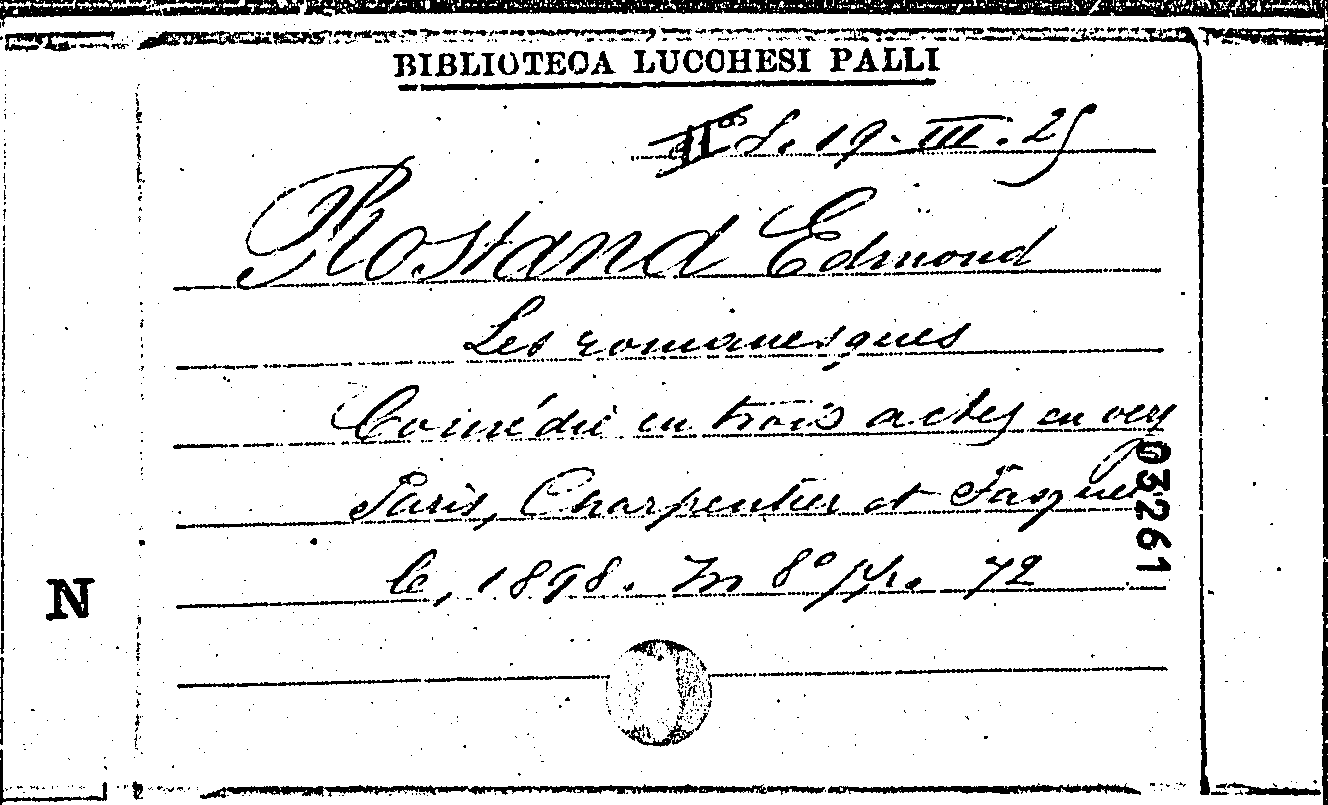 BIBLIOTECA LUCCHESI PALLI
S. 19. III. 25
Rostand Edmond
Les romanesques
Comédie en trois actes en vers
Paris, Charpentier et Fasquel
le, 1898. In 8° pp. 72
03261
N